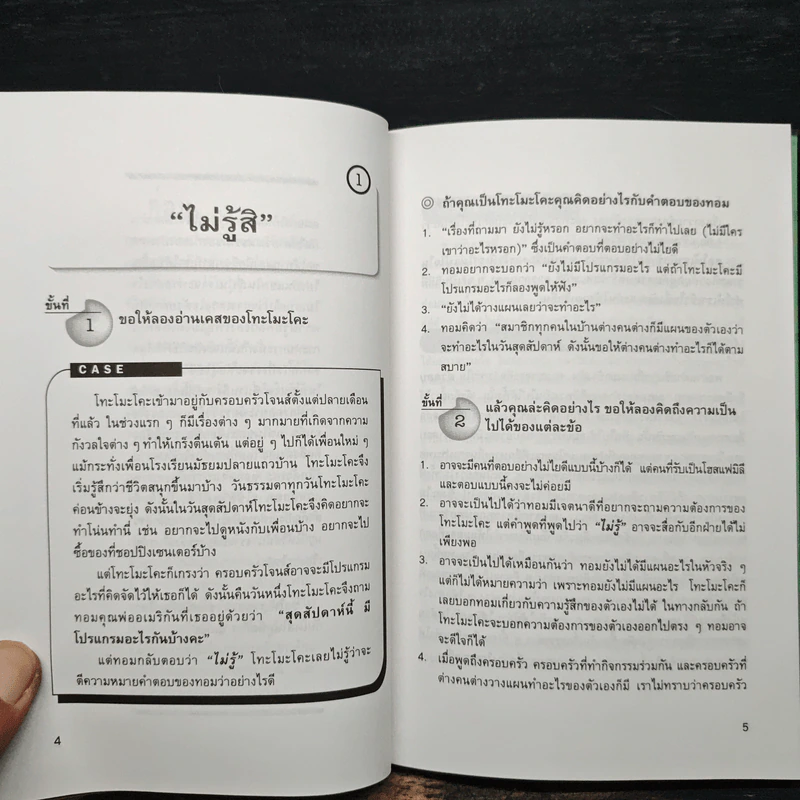 1
“ไม่รู้สิ”
ขั้นที่
1
ขอให้ลองอ่านเคสของโทะโมะโคะ
CASE
โทะโมะโคะเข้ามาอยู่กับครอบครัวโจนส์ตั้งแต่ปลายเดือน
ที่แล้ว ในช่วงแรก ๆ ก็มีเรื่องต่าง ๆ มากมายที่เกิดจากความ
กังวลใจต่าง ๆ ทำให้เกร็งตื่นเต้น แต่อยู่ ๆ ไปก็ได้เพื่อนใหม่ ๆ
แม้กระทั่งเพื่อนโรงเรียนมัธยมปลายแถวบ้าน โทะโมะโคะจึง
เริ่มรู้สึกว่าชีวิตสนุกขึ้นมาบ้าง วันธรรมดาทุกวันโทะโมะโคะ
ค่อนข้างจะยุ่ง ดังนั้นในวันสุดสัปดาห์โทะโมะโคะจึงคิดอยากจะ
ทำโน่นทำนี่ เช่น อยากจะไปดูหนังกับเพื่อนบ้าง อยากจะไป
ซื้อของที่ชอปปิงเซนเตอร์บ้าง
แต่โทะโมะโคะก็เกรงว่า ครอบครัวโจนส์อาจจะมีโปรแกรม
อะไรที่คิดจัดไว้ให้เธอก็ได้ ดังนั้นคืนวันหนึ่งโทะโมะโคะจึงถาม
ทอมคุณพ่ออเมริกันที่เธออยู่ด้วยว่า “สุดสัปดาห์นี้ มี
โปรแกรมอะไรกันบ้างคะ”
แต่ทอมกลับตอบว่า “ไม่รู้” โทะโมะโคะเลยไม่รู้ว่าจะ
ตีความหมายคำตอบของทอมว่าอย่างไรดี
4
ถ้าคุณเป็นโทะโมะโคะคุณคิดอย่างไรกับคำตอบของทอม
1. “เรื่องที่ถามมา ยังไม่รู้หรอก อยากจะทำอะไรก็ทำไปเลย (ไม่มีใคร
เขาว่าอะไรหรอก)” ซึ่งเป็นคำตอบที่ตอบอย่างไม่ไยดี
2. ทอมอยากจะบอกว่า “ยังไม่มีโปรแกรมอะไร แต่ถ้าโทะโมะโคะมี
โปรแกรมอะไรก็ลองพูดให้ฟัง”
3. “ยังไม่ได้วางแผนเลยว่าจะทำอะไร”
4. ทอมคิดว่า “สมาชิกทุกคนในบ้านต่างคนต่างก็มีแผนของตัวเองว่า
จะทำอะไรในวันสุดสัปดาห์ ดังนั้นขอให้ต่างคนต่างทำอะไรก็ได้ตาม
สบาย”
ขั้นที่
2
แล้วคุณล่ะคิดอย่างไร ขอให้ลองคิดถึงความเป็น
ไปได้ของแต่ละข้อ
1. อาจจะมีคนที่ตอบอย่างไม่ไยดีแบบนี้บ้างก็ได้ แต่คนที่รับเป็นโฮสแฟมิลี
และตอบแบบนี้คงจะไม่ค่อยมี
2. อาจจะเป็นไปได้ว่าทอมมีเจตนาดีที่อยากจะถามความต้องการของ
โทะโมะโคะ แต่คำพูดที่พูดไปว่า “ไม่รู้” อาจจะสื่อกับอีกฝ่ายได้ไม่
เพียงพอ
3. อาจจะเป็นไปได้เหมือนกันว่า ทอมยังไม่ได้มีแผนอะไรในหัวจริง ๆ
แต่ก็ไม่ได้หมายความว่า เพราะทอมยังไม่มีแผนอะไร โทะโมะโคะก็
เลยบอกทอมเกี่ยวกับความรู้สึกของตัวเองไม่ได้ ในทางกลับกัน ถ้า
โทะโมะโคะจะบอกความต้องการของตัวเองออกไปตรง ๆ ทอมอาจ
จะดีใจก็ได้
4. เมื่อพูดถึงครอบครัว ครอบครัวที่ทำกิจกรรมร่วมกัน และครอบครัวที่
ต่างคนต่างวางแผนทำอะไรของตัวเองก็มี เราไม่ทราบว่าครอบครัว
5